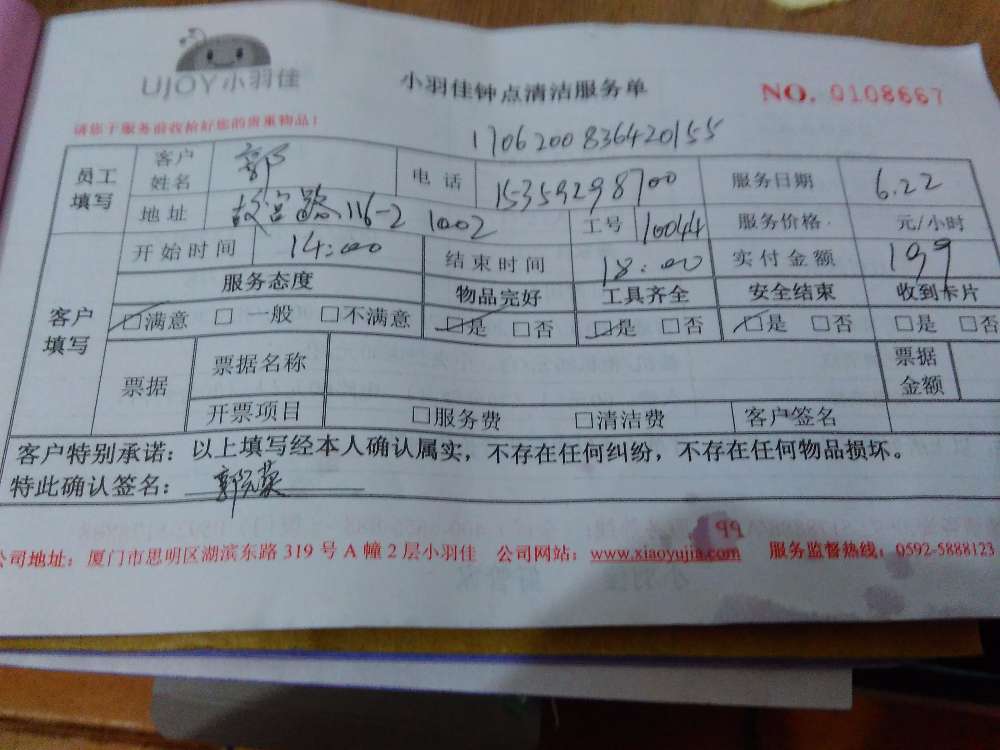 UJOY小羽佳
小羽佳钟点清洁服务单
NO. 0108667
请您于服务前收拾好您的贵重物品！
1706200836420155
员工填写 客户姓名 郭 电话 15359298700 服务日期 6.22
地址 故宫路116-2 1002 工号 10044 服务价格 元/小时
客户填写 开始时间 14:00 结束时间 18:00 实付金额 199
服务态度 物品完好 工具齐全 安全结束 收到卡片
□满意 □一般 □不满意 □是 □否 □是 □否 □是 □否 □是 □否
票据 票据名称 票据金额
开票项目 □服务费 □清洁费 客户签名
客户特别承诺：以上填写经本人确认属实，不存在任何纠纷，不存在任何物品损坏。
特此确认签名：郭
公司地址：厦门市思明区湖滨东路319号A幢2层小羽佳 公司网站：www.xiaoyujia.com 服务监督热线：0592-5888123